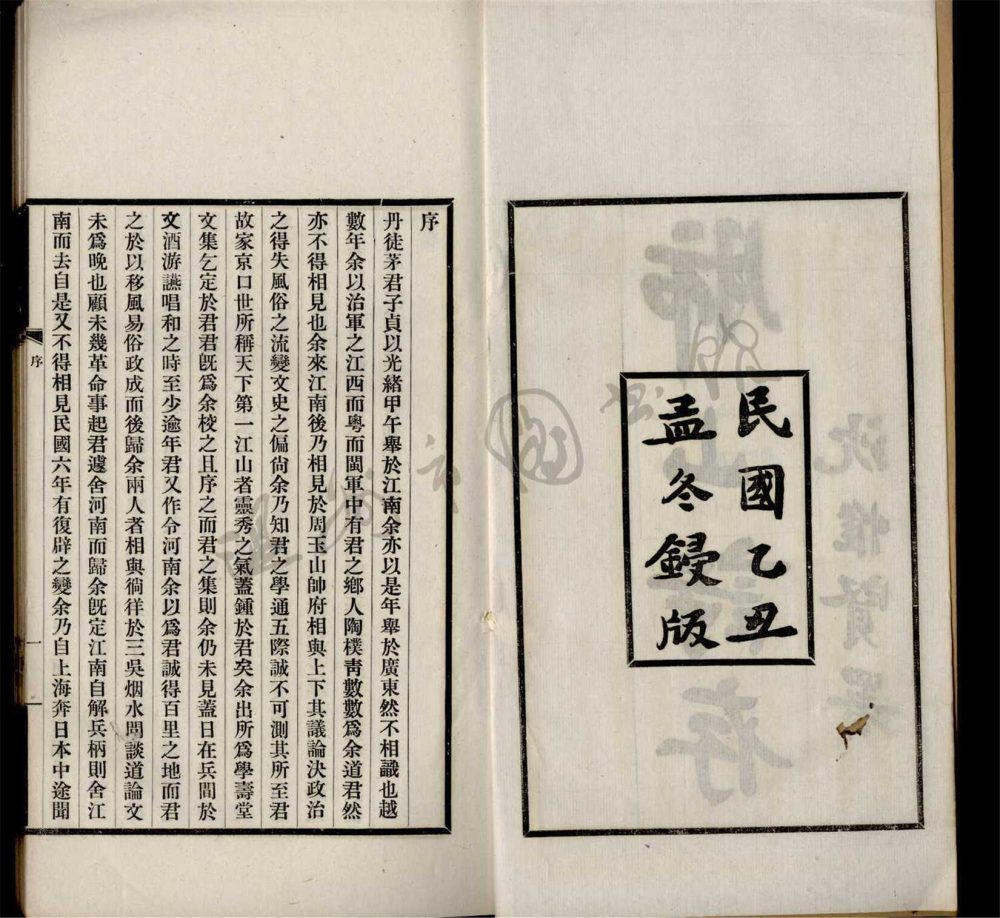 民國乙丑
孟冬鋟版
序
丹徒茅君子貞以光緒甲午舉於江南余亦以是年舉於廣東然不相識也越
數年余以治軍之江西而粵而閩軍中有君之鄉人陶樸青數數爲余道君然
亦不得相見也余來江南後乃相見於周玉山帥府相與上下其議論決政治
之得失風俗之流變文史之偏尙余乃知君之學通五際誠不可測其所至君
故家京口世所稱天下第一江山者靈秀之氣蓋鍾於君矣余出所爲學壽堂
文集乞定於君君旣爲余校之且序之而君之集則余仍未見蓋日在兵間於
文酒游讌唱和之時至少逾年君又作令河南余以爲君誠得百里之地而君
之於以移風易俗政成而後歸余兩人者相與徜徉於三吳烟水間談道論文
未爲晚也顧未幾革命事起君遽舍河南而歸余旣定江南自解兵柄則舍江
南而去自是又不得相見民國六年有復辟之變余乃自上海奔日本中途聞
序
一